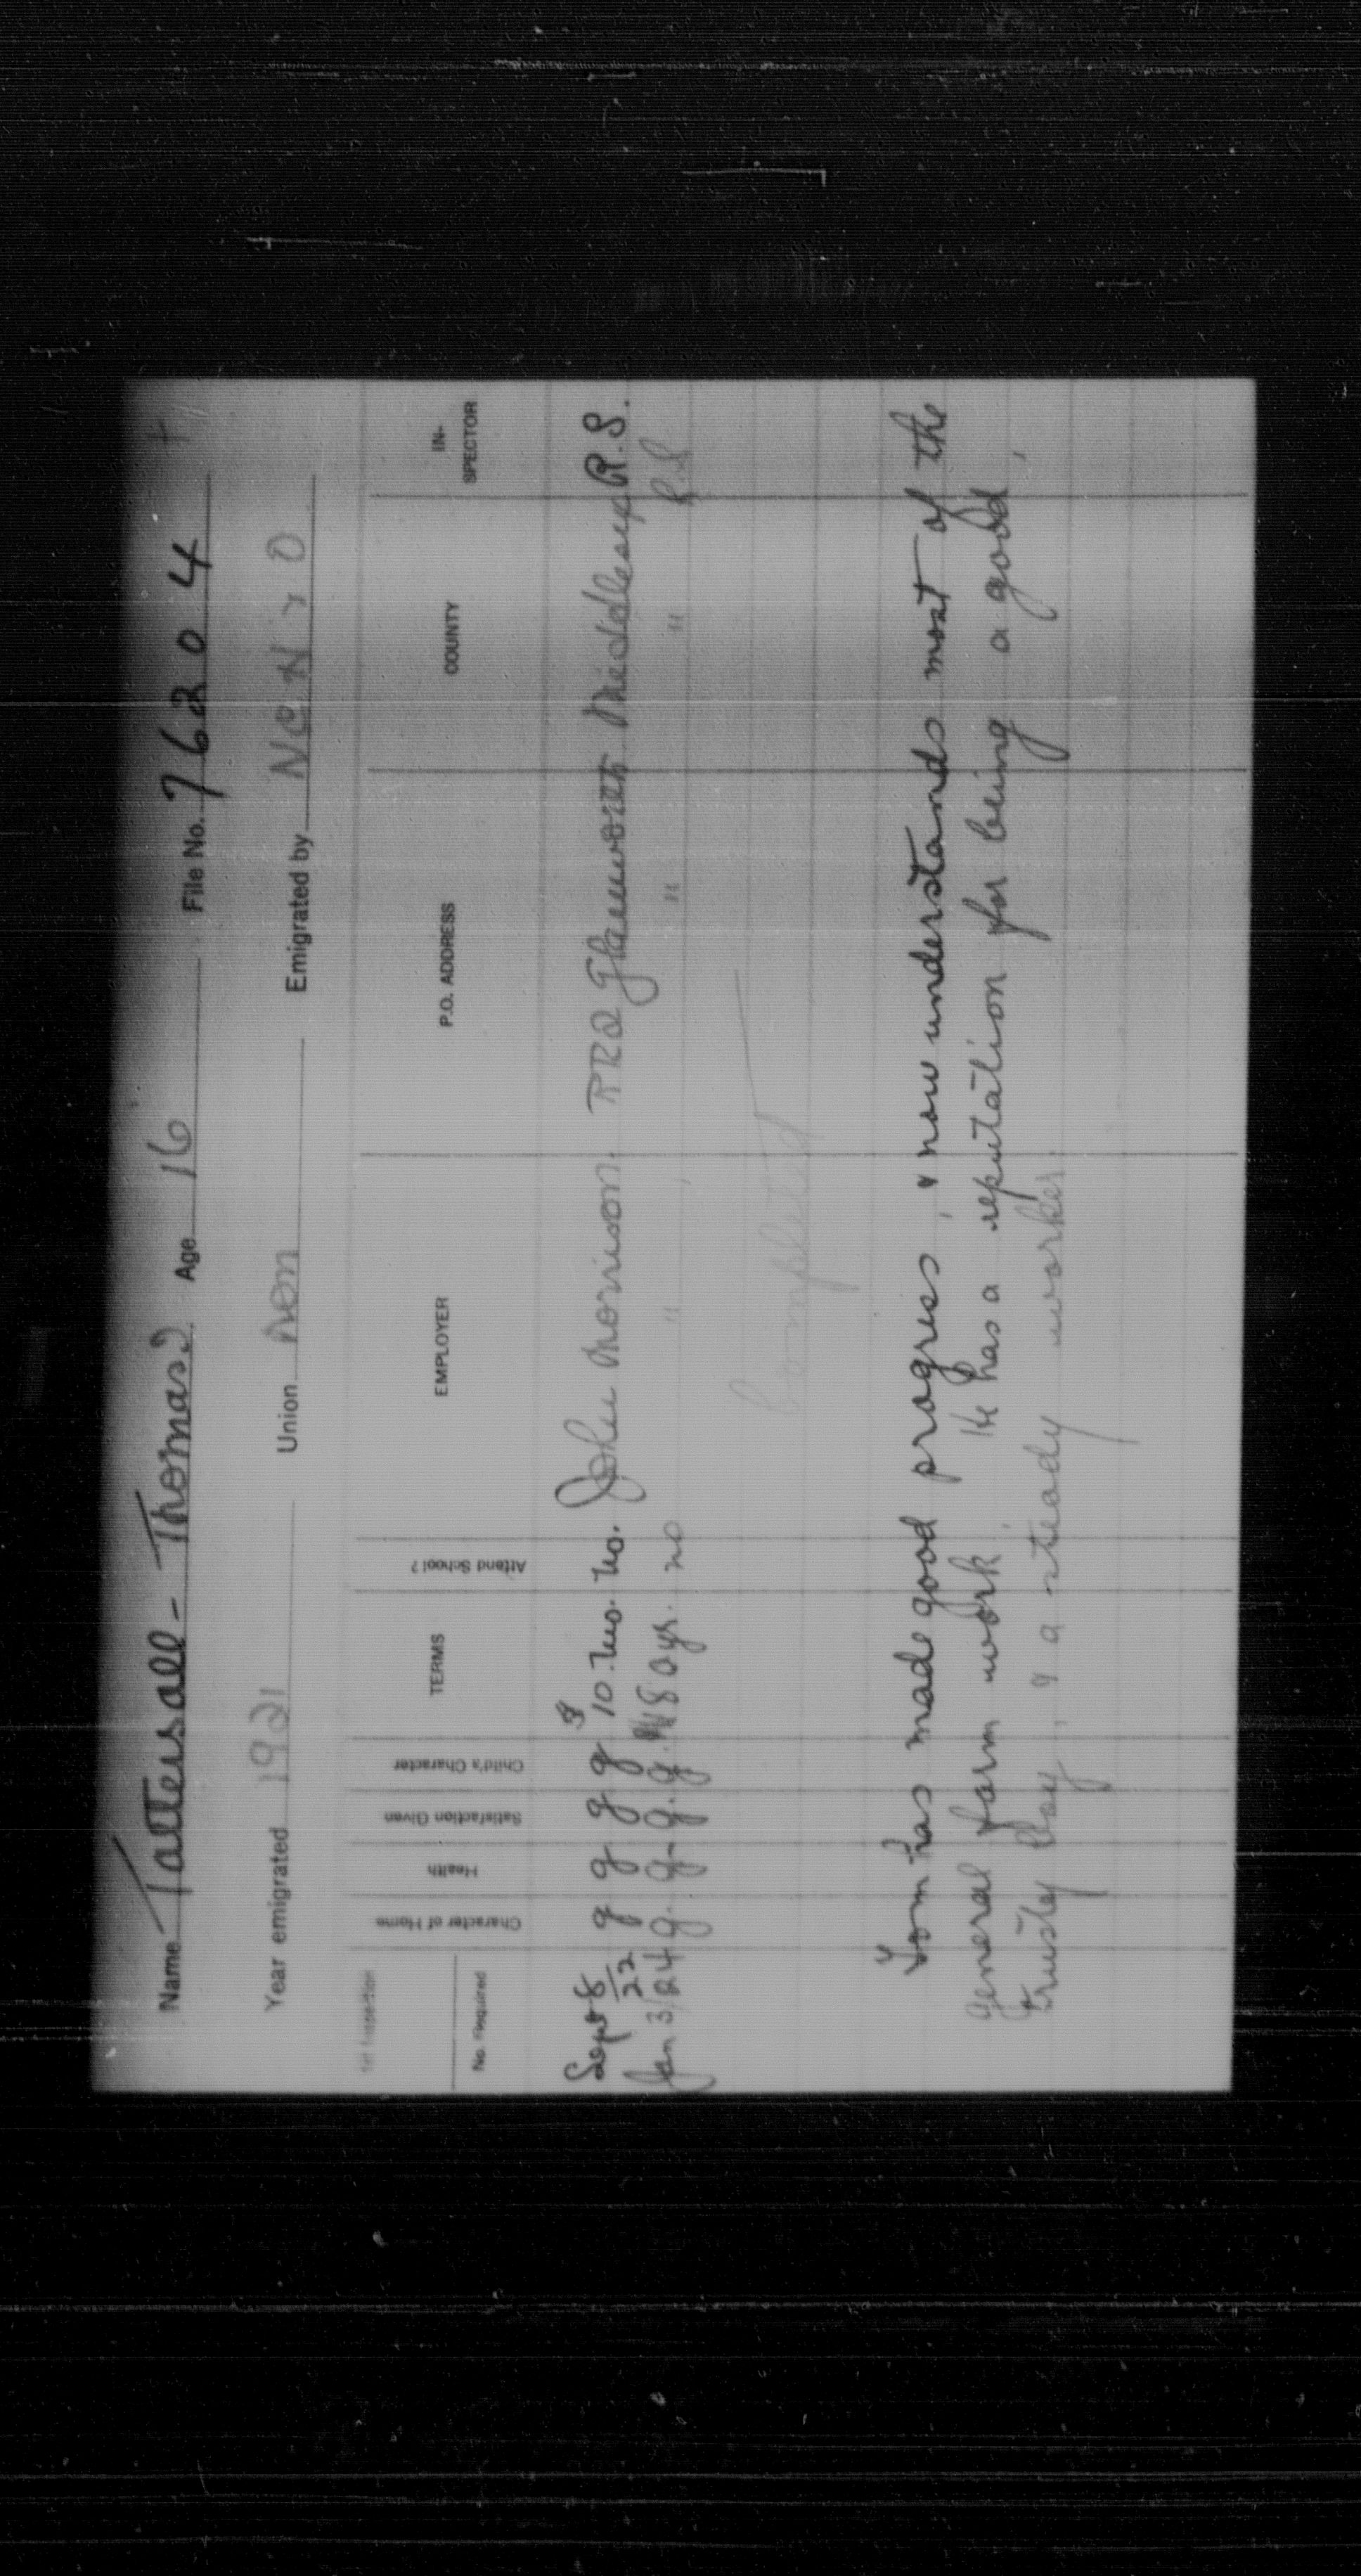 Name Tattersall - Thomas Age 16 File No. 76204
Year emigrated 1921 Union Non Emigrated by N C H & O
1st Inspection
No. Required
Character of Home Health Satisfaction Given Child's Character TERMS Attend School? EMPLOYER P.O. ADDRESS COUNTY IN-SPECTOR
Sept 8/22 g g g g $ 10. mo. no. John Morrison. RR2 Glanworth Middlesex R.S.
Jan 3/24 g. g. g. g. 80 yr. no " " " R.S
Completed
Tom has made good progress, & now understands most of the
general farm work. He has a reputation for being a good,
trusty boy, & a steady worker.